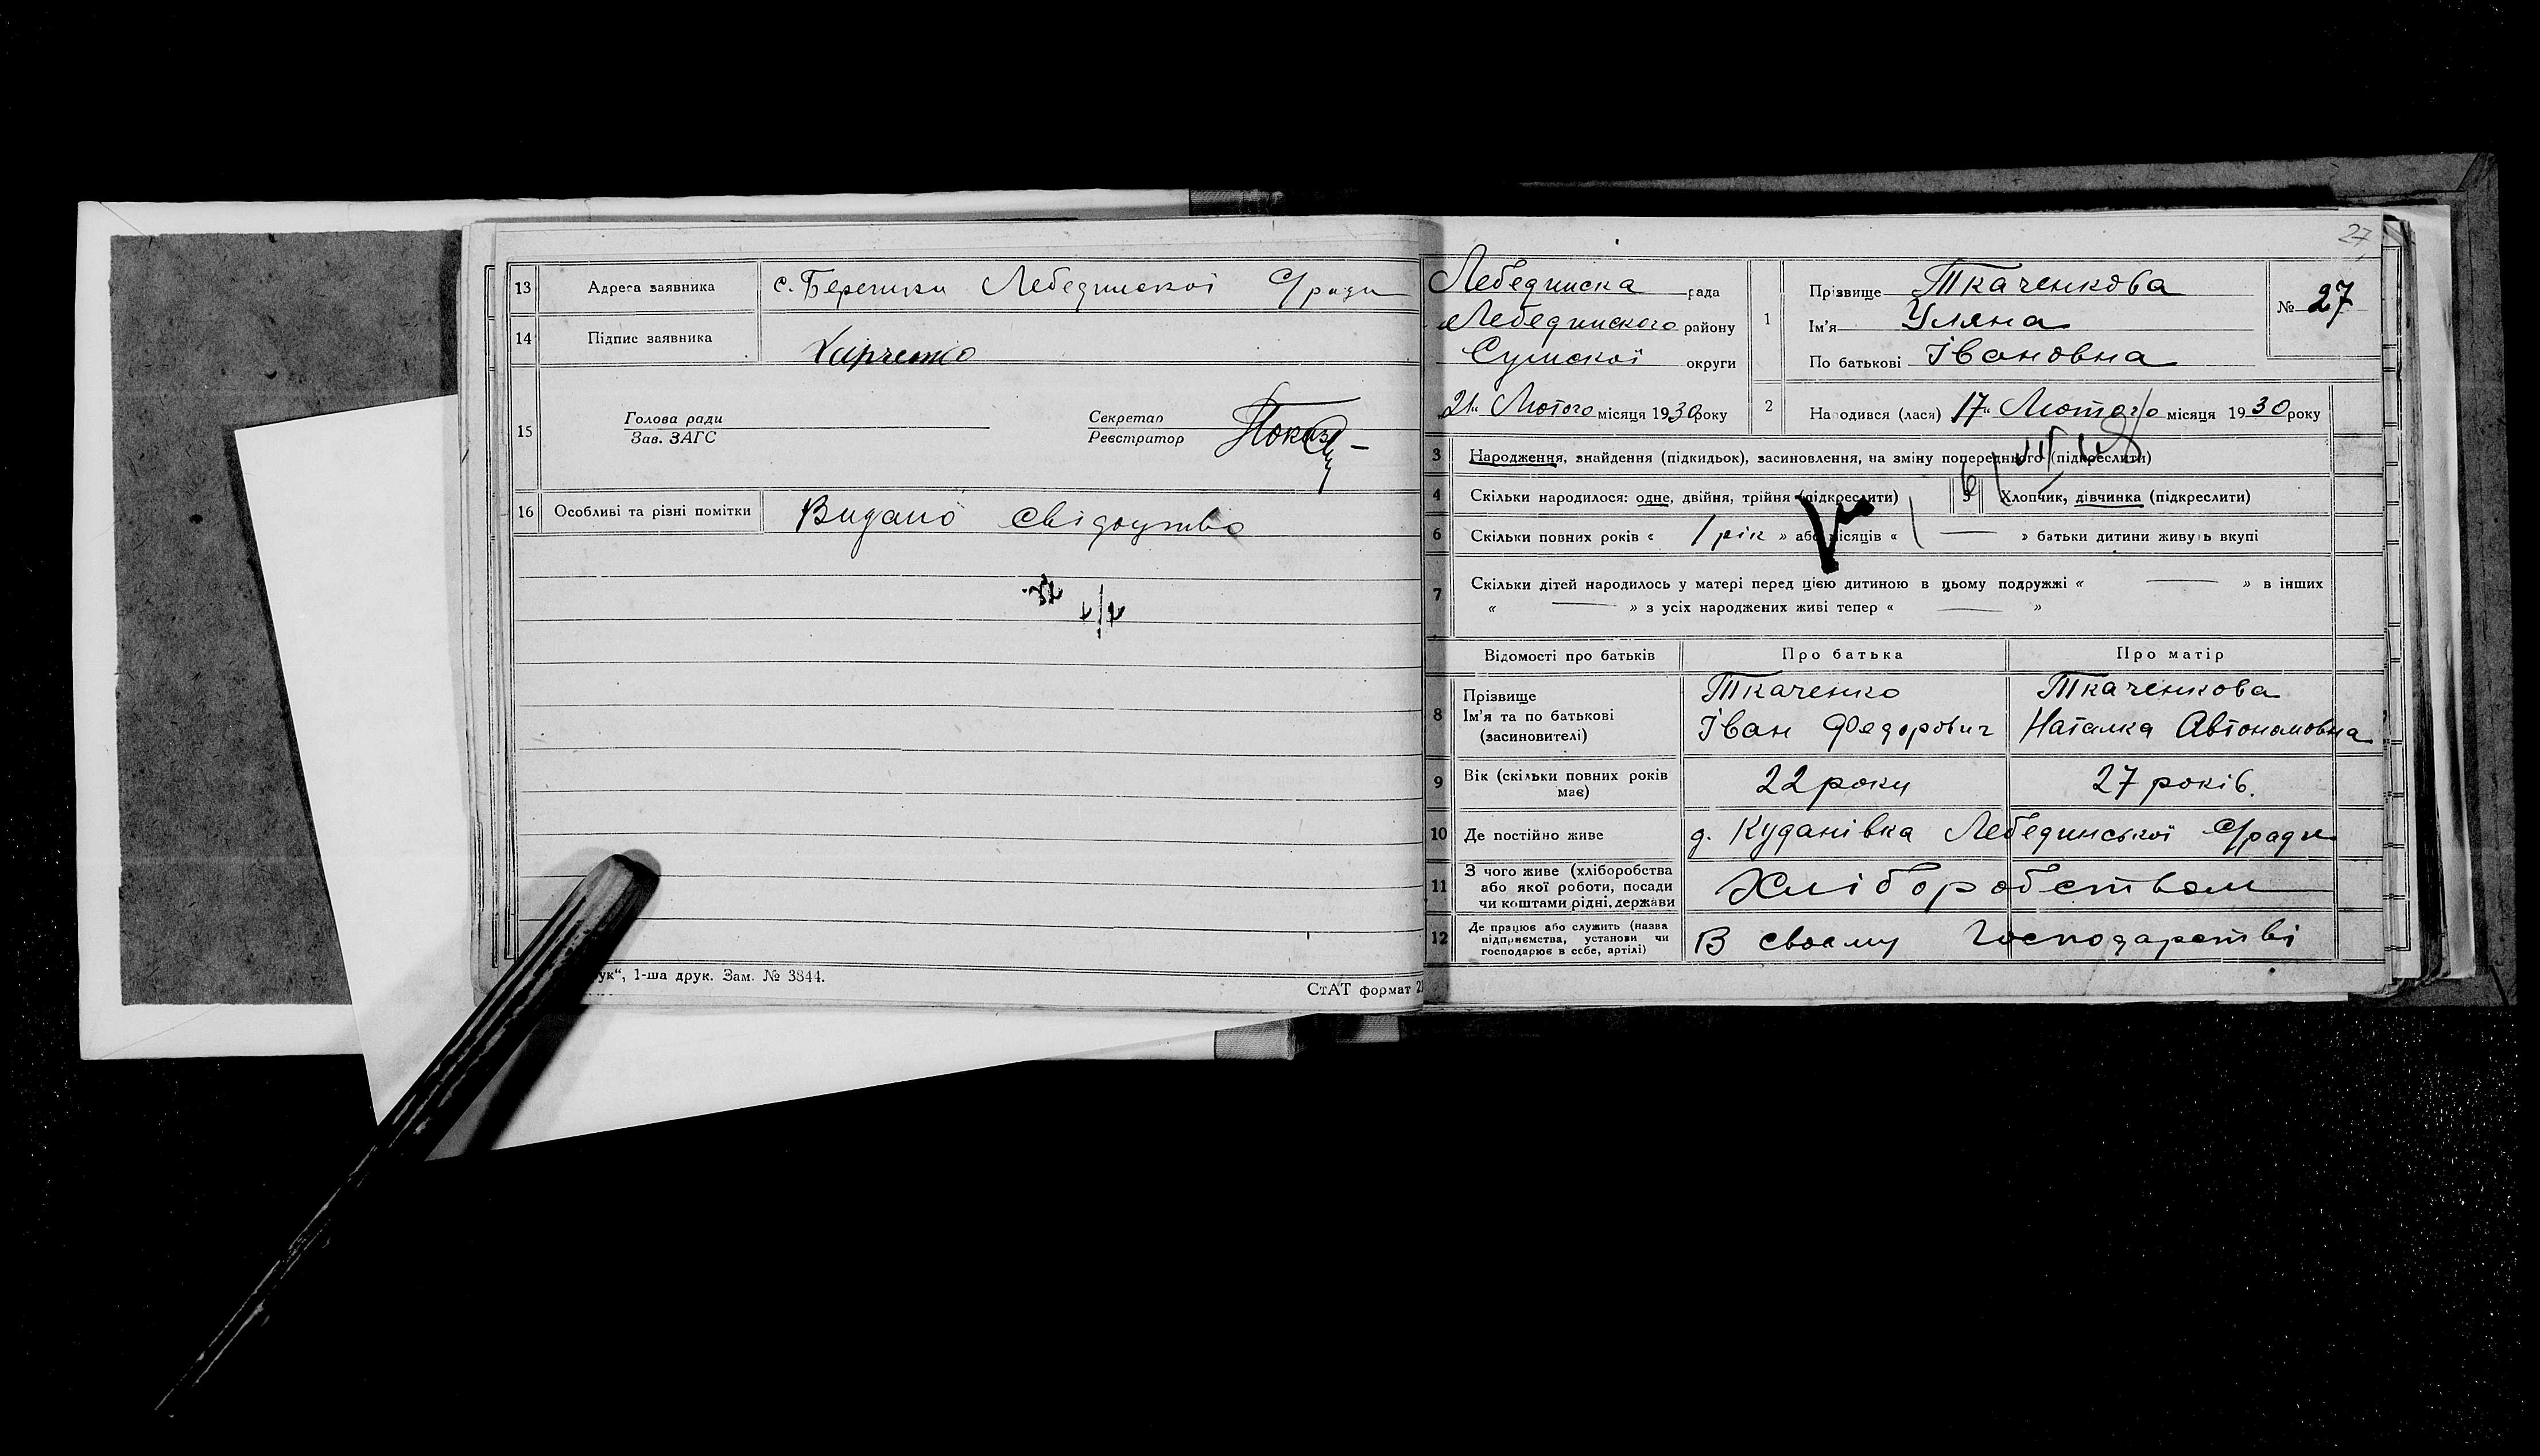 13 Адреса заявника с. Беречики Лебединскої С/ради
14 Підпис заявника Харченко
15 Голова ради Секретар
Зав. ЗАГС Реєстратор
16 Особливі та різні помітки Видано свідоцтво
ук“, 1-ша друк. Зам. № 3844.
СтАТ формат
27
Лебединска рада
Лебединского району
Сумскої округи
21 Лютого місяця 1930 року
1 Прізвище Ткаченкова
Ім'я Уляна
По батькові Івановна
№ 27
2 Народився (лася) 17 Лютого місяця 1930 року
3 Народження, знайдення (підкидьок), засиновлення, на зміну попереднього (підкреслити)
4 Скільки народилося: одне, двійня, трійня (підкреслити) 5 Хлопчик, дівчинка (підкреслити)
6 Скільки повних років « 1 рік » або місяців « — » батьки дитини живуть вкупі
7 Скільки дітей народилось у матері перед цією дитиною в цьому подружжі « — » в інших
« — » з усіх народжених живі тепер « — »
Відомості про батьків Про батька Про матір
8 Прізвище Ткаченко Ткаченкова
Ім'я та по батькові Іван Федорович Наталка Автономовна
(засиновителі)
9 Вік (скільки повних років має) 22 роки 27 років.
10 Де постійно живе д. Куданівка Лебединської С/ради
11 З чого живе (хліборобства
або якої роботи, посади
чи коштами рідні, держави Хліборобством
12 Де працює або служить (назва
підприємства, установи чи
господарює в себе, артілі) В своєму Господарстві